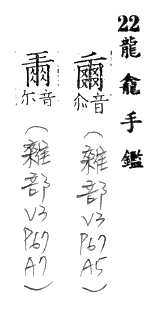 22龍龕手鑑
音尒
(雜部V3P67A5)
音尓
(雜部V3P67A7)